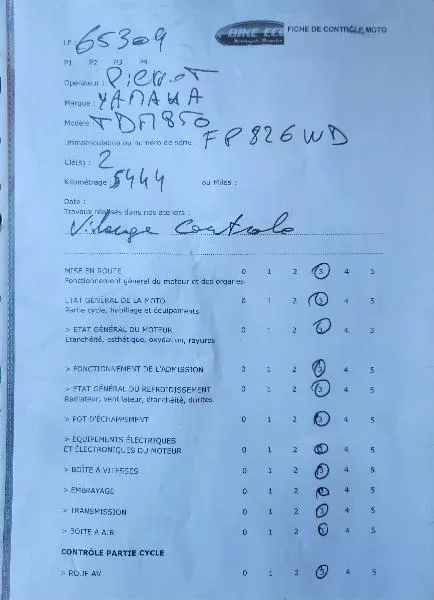 BIKE ECO
FICHE DE CONTRÔLE MOTO
LP : 65309
P1 P2 P3 P4
Opérateur : Pierrot
Marque : YAMAHA
Modèle : TDM850
Immatriculation ou numéro de série : FP826WD
Clé(s) : 2
Kilométrage : 5444 ou Miles :
Date :
Travaux réalisés dans nos ateliers :
Vidange Controle
MISE EN ROUTE 0 1 2 3 4 5
Fonctionnement général du moteur et des organes
ETAT GÉNÉRAL DE LA MOTO 0 1 2 3 4 5
Partie cycle, habillage et équipements
> ETAT GÉNÉRAL DU MOTEUR 0 1 2 3 4 5
Etanchéité, esthétique, oxydation, rayures
> FONCTIONNEMENT DE L'ADMISSION 0 1 2 3 4 5
> ETAT GÉNÉRAL DU REFROIDISSEMENT 0 1 2 3 4 5
Radiateur, ventilateur, étanchéité, durites
> POT D'ÉCHAPPEMENT 0 1 2 3 4 5
> EQUIPEMENTS ÉLECTRIQUES
ET ÉLECTRONIQUES DU MOTEUR 0 1 2 3 4 5
> BOÎTE À VITESSES 0 1 2 3 4 5
> EMBRAYAGE 0 1 2 3 4 5
> TRANSMISSION 0 1 2 3 4 5
> BOITE A AIR 0 1 2 3 4 5
CONTRÔLE PARTIE CYCLE
> ROUE AV 0 1 2 3 4 5